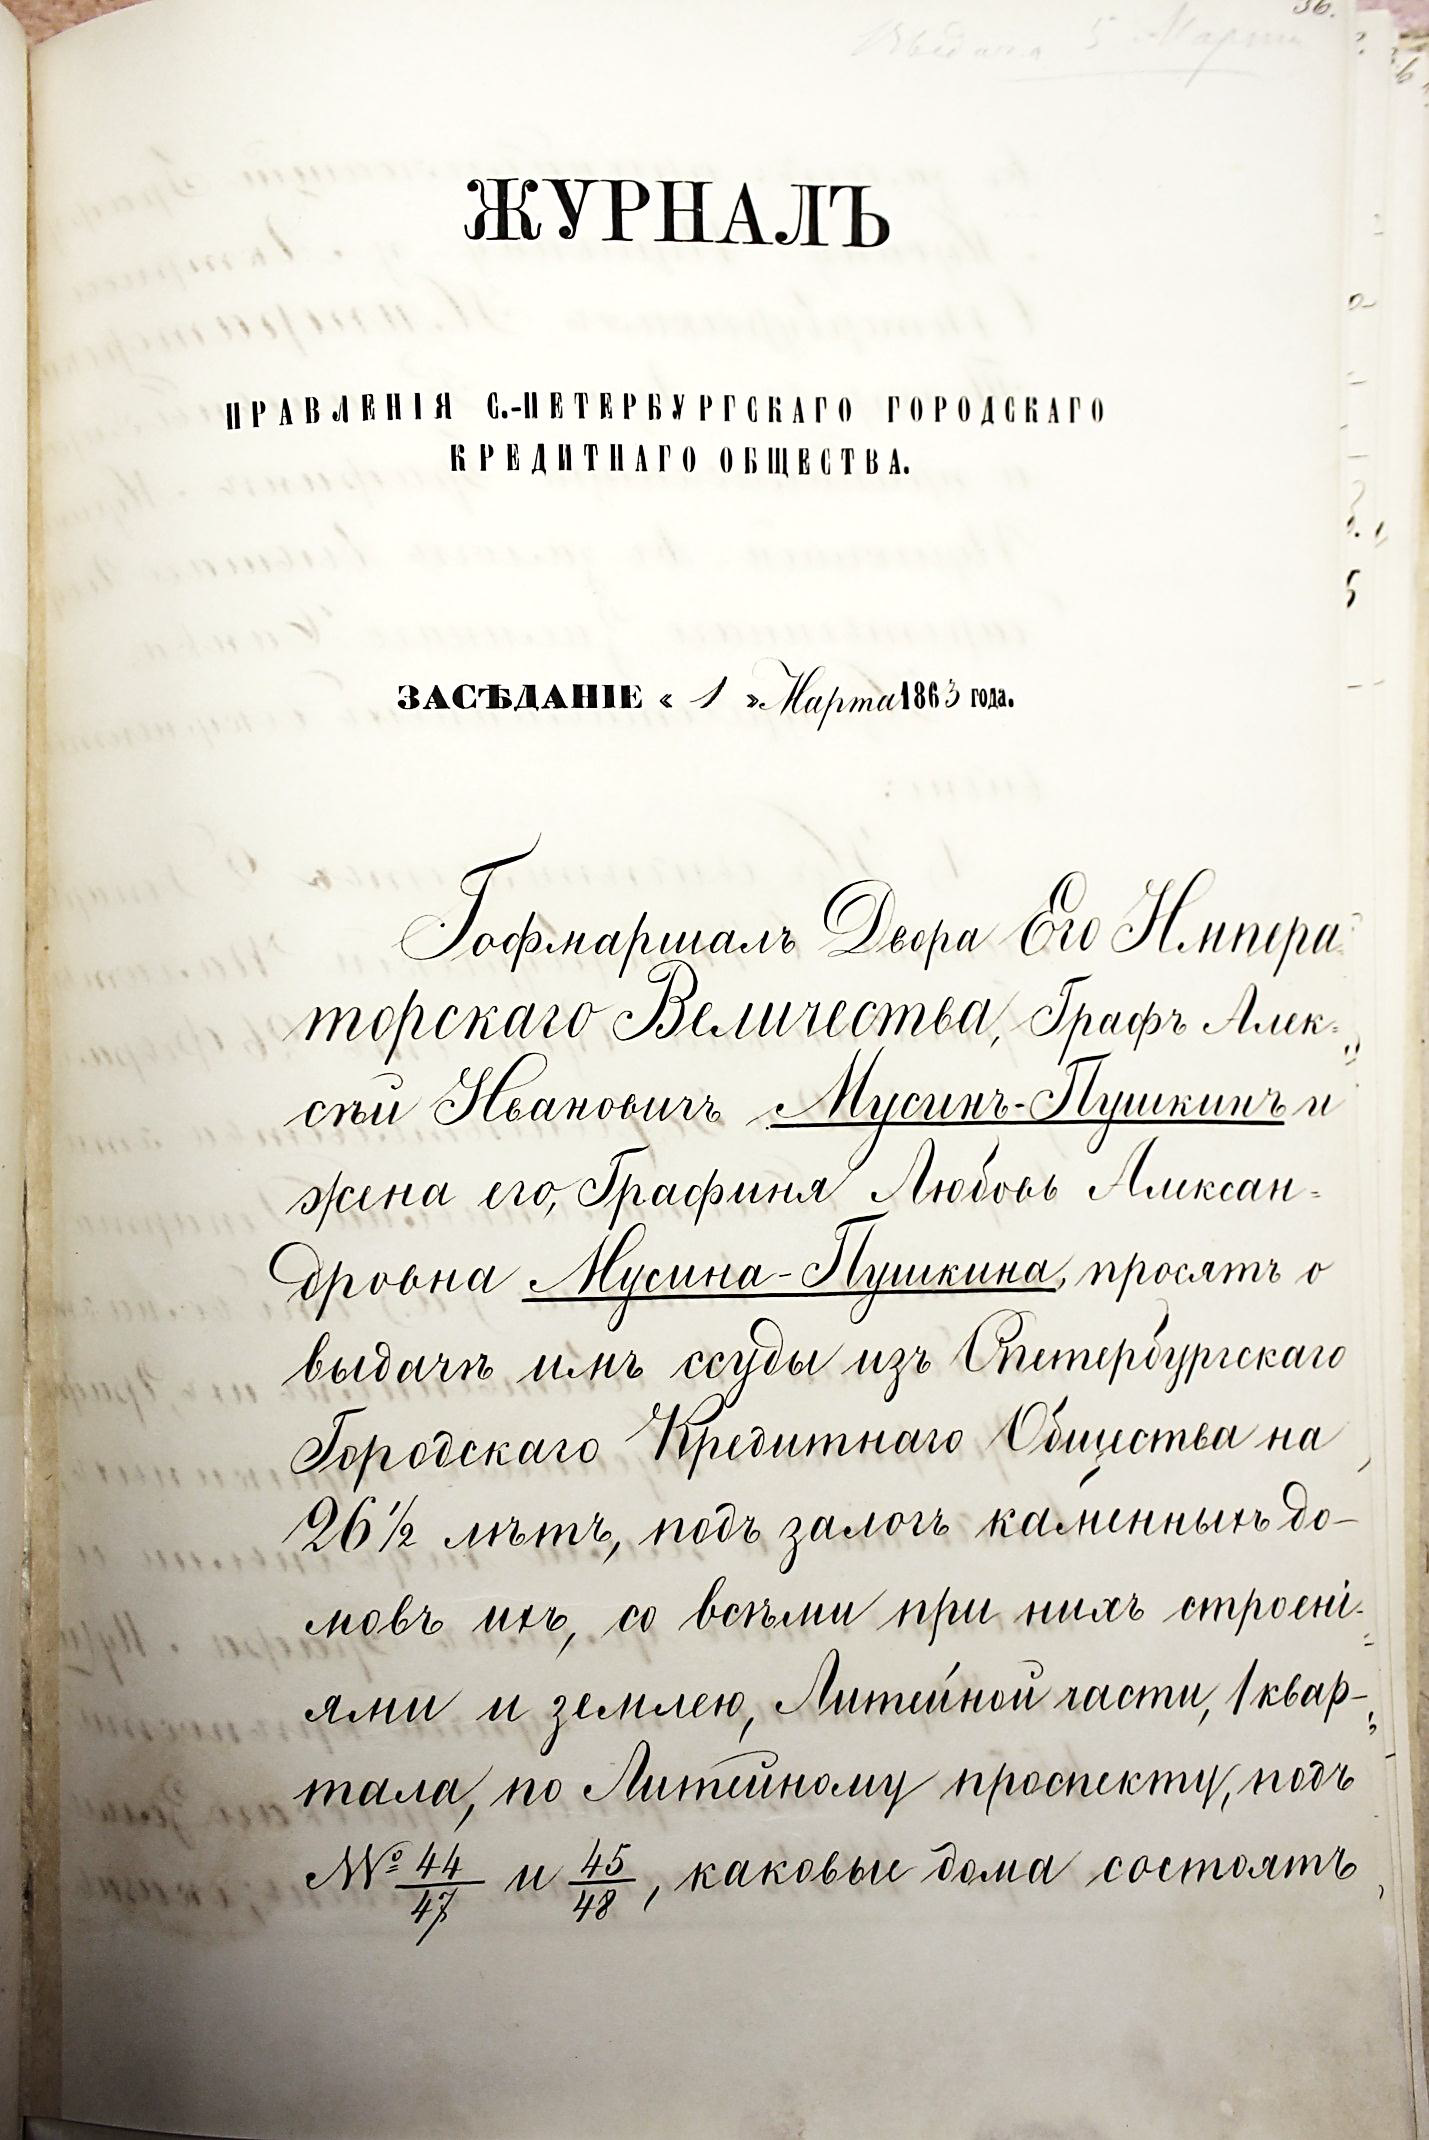 36.
5 Марта
ЖУРНАЛЪ
ПРАВЛЕНІЯ С.-ПЕТЕРБУРГСКАГО ГОРОДСКАГО
КРЕДИТНАГО ОБЩЕСТВА.
ЗАСѢДАНІЕ « 1 » Марта 1863 года.
Гофмаршалъ Двора Его Импера
торскаго Величества, Графъ Алек=
сѣй Ивановичъ Мусинъ-Пушкинъ и
жена его, Графиня Любовь Алексан=
дровна Мусина-Пушкина, просятъ о
выдачѣ имъ ссуды изъ СПетербургскаго
Городскаго Кредитнаго Общества на
26 1/2 лѣтъ, подъ залогъ каменныхъ до-
мовъ ихъ, со всѣми при нихъ строені-
ями и землею, Литейной части, 1 квар-
тала, по Литейному проспекту, подъ
№ 44/47 и 45/48, каковые дома состоятъ